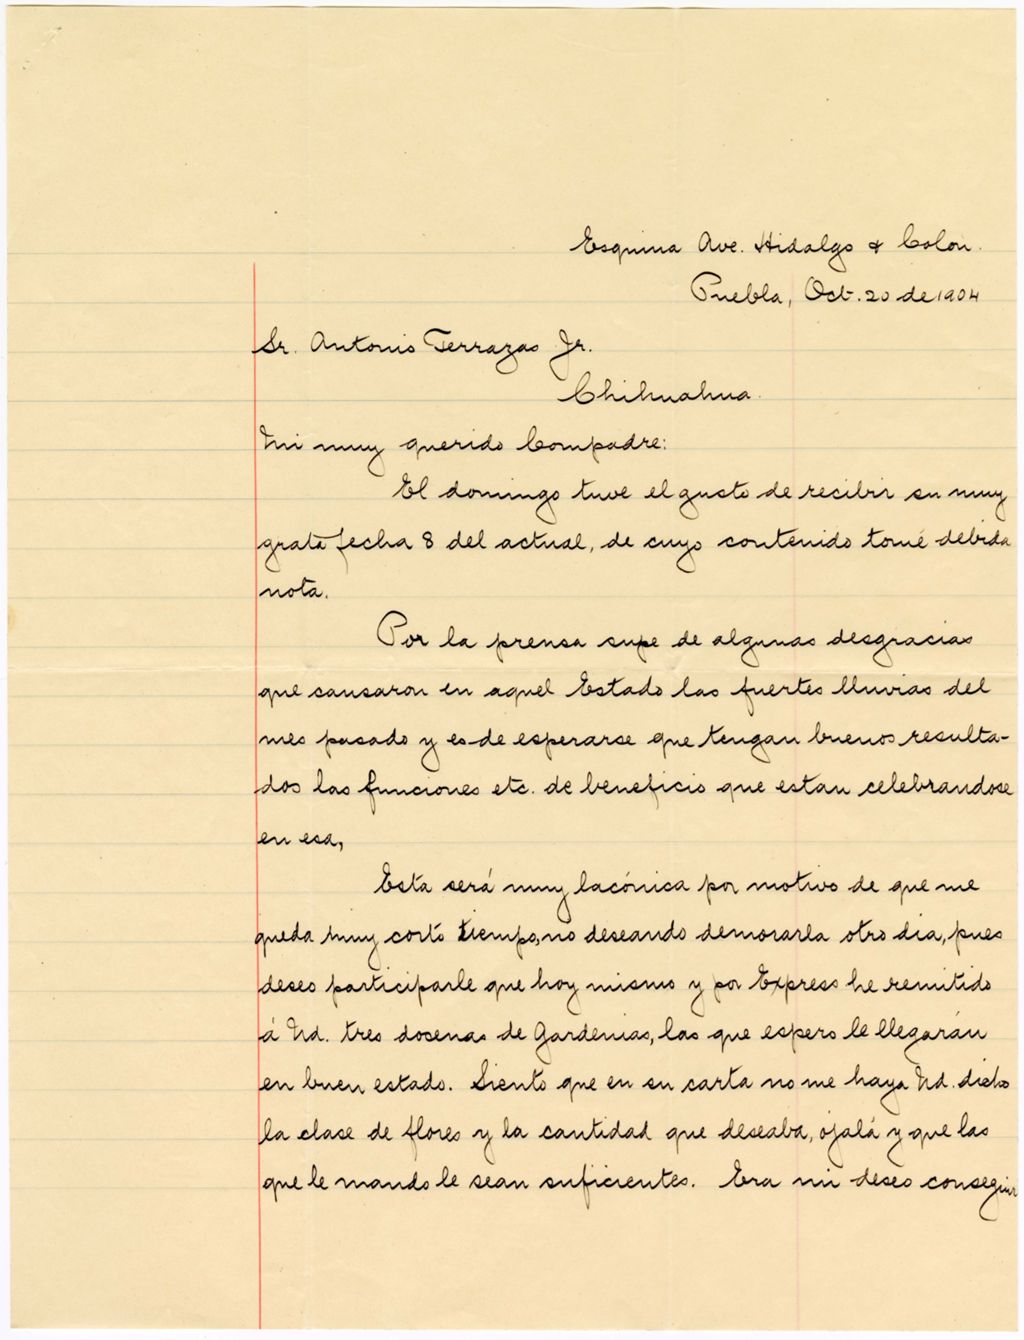 Esquina Ave. Hidalgo & Colon.
Puebla, Oct. 20 de 1904
Sr. Antonio Terrazas Jr.
Chihuahua.
Mi muy querido Compadre:
El domingo tuve el gusto de recibir su muy
grata fecha 8 del actual, de cuyo contenido tomé debida
nota.
Por la prensa supe de algunas desgracias
que causaron en aquel Estado las fuertes lluvias del
mes pasado y es de esperarse que tengan buenos resulta-
dos las funciones etc. de beneficio que estan celebrandose
en esa,
Esta será muy lacónica por motivo de que me
queda muy corto tiempo, no deseando demorarla otro dia, pues
deseo participarle que hoy mismo y por Express he remitido
á Ud. tres docenas de Gardenias, las que espero le llegarán
en buen estado. Siento que en su carta no me haya Ud. dicho
la clase de flores y la cantidad que deseaba, ojalá y que las
que le mando le sean suficientes. Era mi deseo conseguir